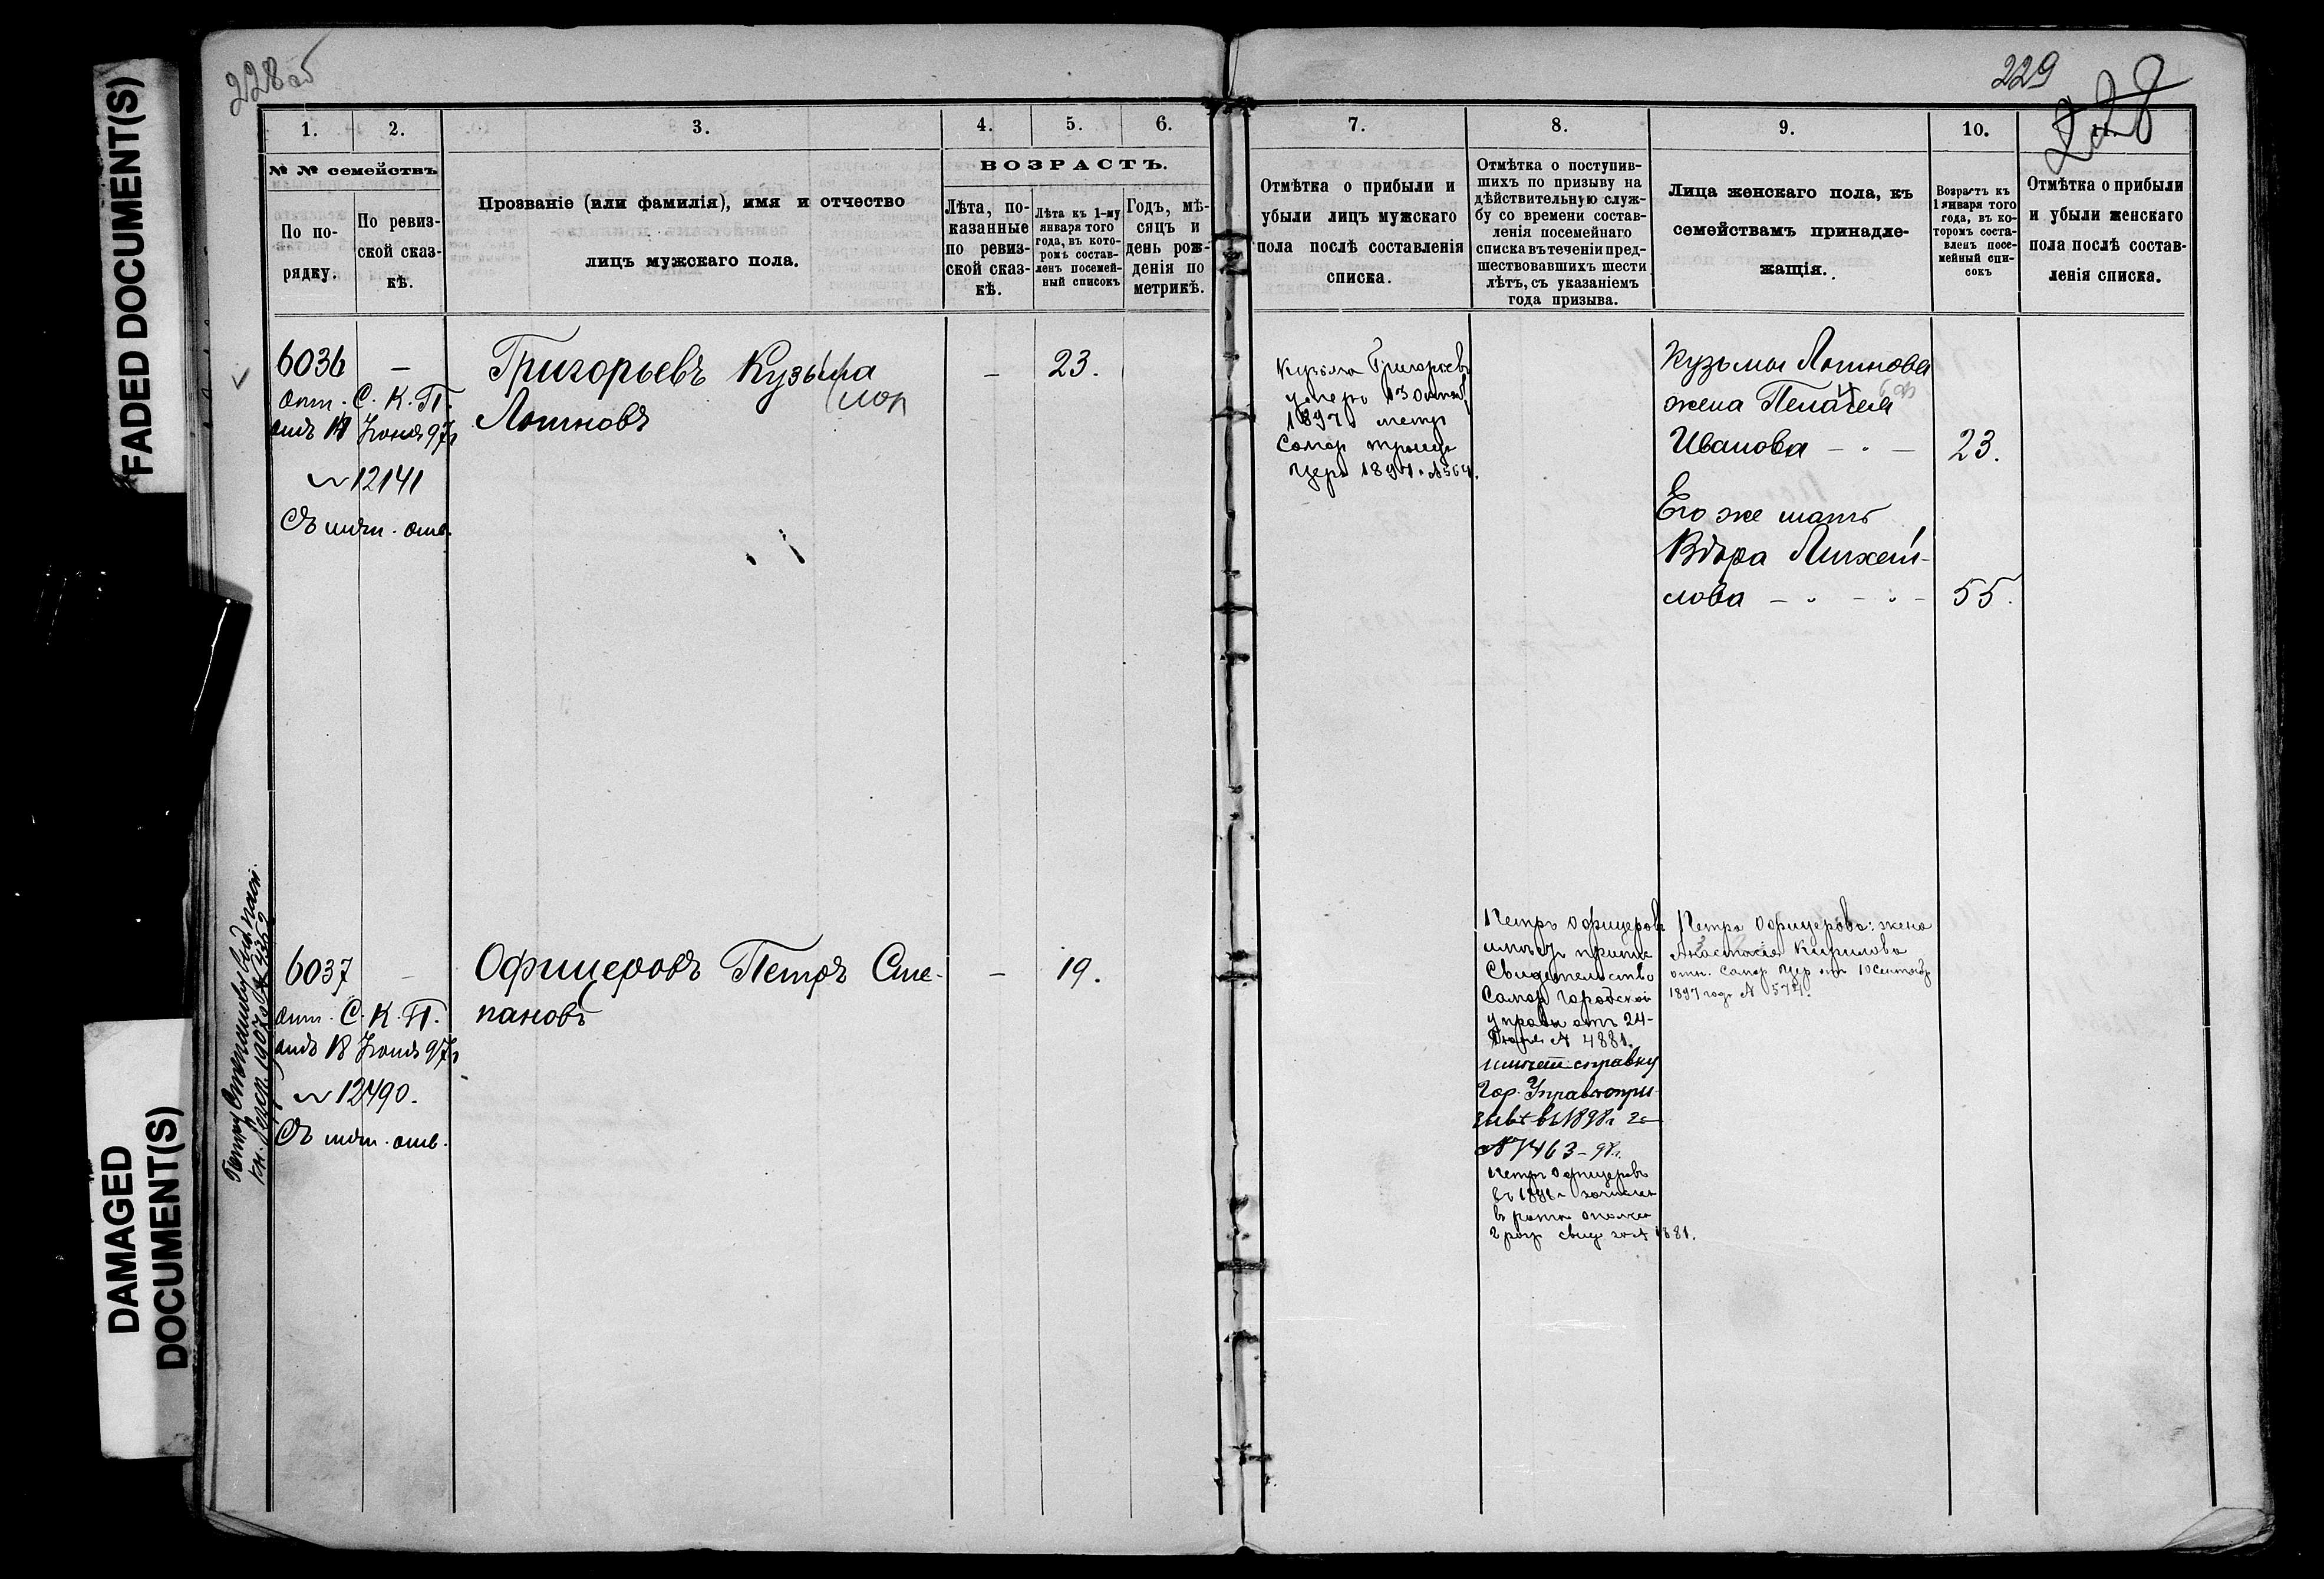 FADED DOCUMENT(S)
DAMAGED
DOCUMENT(S)
228об
1.
2.
3.
4.
5.
6.
№ № семействъ
По по-
рядку.
По ревиз-
ской сказ-
кѣ.
Прозваніе (или фамилія), имя и отчество
лицъ мужскаго пола.
ВОЗРАСТЪ.
Лѣта, по-
казанные
по ревиз-
ской сказ-
кѣ.
Лѣта къ 1-му
января того
года, въ кото-
ромъ состав-
ленъ посемей-
ный списокъ
Годъ, мѣ-
сяцъ и
день рож-
денія по
метрикѣ.
6036 —
отт. С. К. П.
отъ 14 Іюня 97г
№ 12141
Григорьевъ Кузьма
— 23.
6037 —
отт. С. К. П.
отъ 18 Іюня 97г
№ 12490.
Офицеровъ Петръ Сте-
пановъ
— 19.
229
228
7.
8.
9.
10.
Отмѣтка о прибыли и
убыли лицъ мужскаго
пола послѣ составленія
списка.
Отмѣтка о поступив-
шихъ по призыву на
дѣйствительную служ-
бу со времени состав-
ленія посемейнаго
списка въ теченіи пред-
шествовавшихъ шести
лѣтъ, съ указаніемъ
года призыва.
Лица женскаго пола, къ
семействамъ принадле-
жащія.
Возрастъ къ
1 января того
года, въ ко-
торомъ соста-
вленъ посе-
мейный спи-
сокъ
Отмѣтка о прибыли
и убыли женскаго
пола послѣ состав-
ленія списка.
Кузьма Григорьевъ
умеръ 13
1897 метр
Самар Троицк
Церк 1897 № 564.
Кузьмы
жена Пелагея
Иванова — 23.
Его же мать
Вѣра Михай-
лова — 55.
Петръ Офицеровъ
имѣетъ припис
Свидетельство
Самар Городской
управы отъ 24
№ 4881.
имѣетъ справку
Гор. Управы о при-
зывѣ въ 1898г за
№ 7463 - 98г.
Петръ Офицеровъ
въ 1898г зачислен
в ратн ополчен
2 разр свид за № 1881.
Петра Офицерова: жена
Анастасія Кирилова
отн. Самар Цер отъ 10 Сентябр
1897 года № 574.